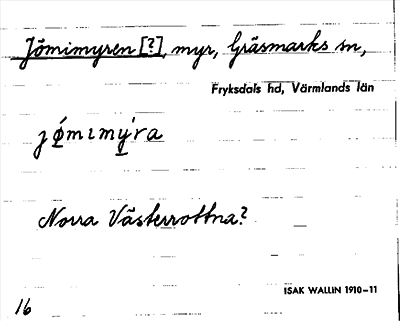 Jömimyren [?], myr, Gräsmarks sn,
Fryksdals hd, Värmlands län
jǿ̱mımý̱ra
Norra Västerrottna?
ISAK WALLIN 1910–11
16